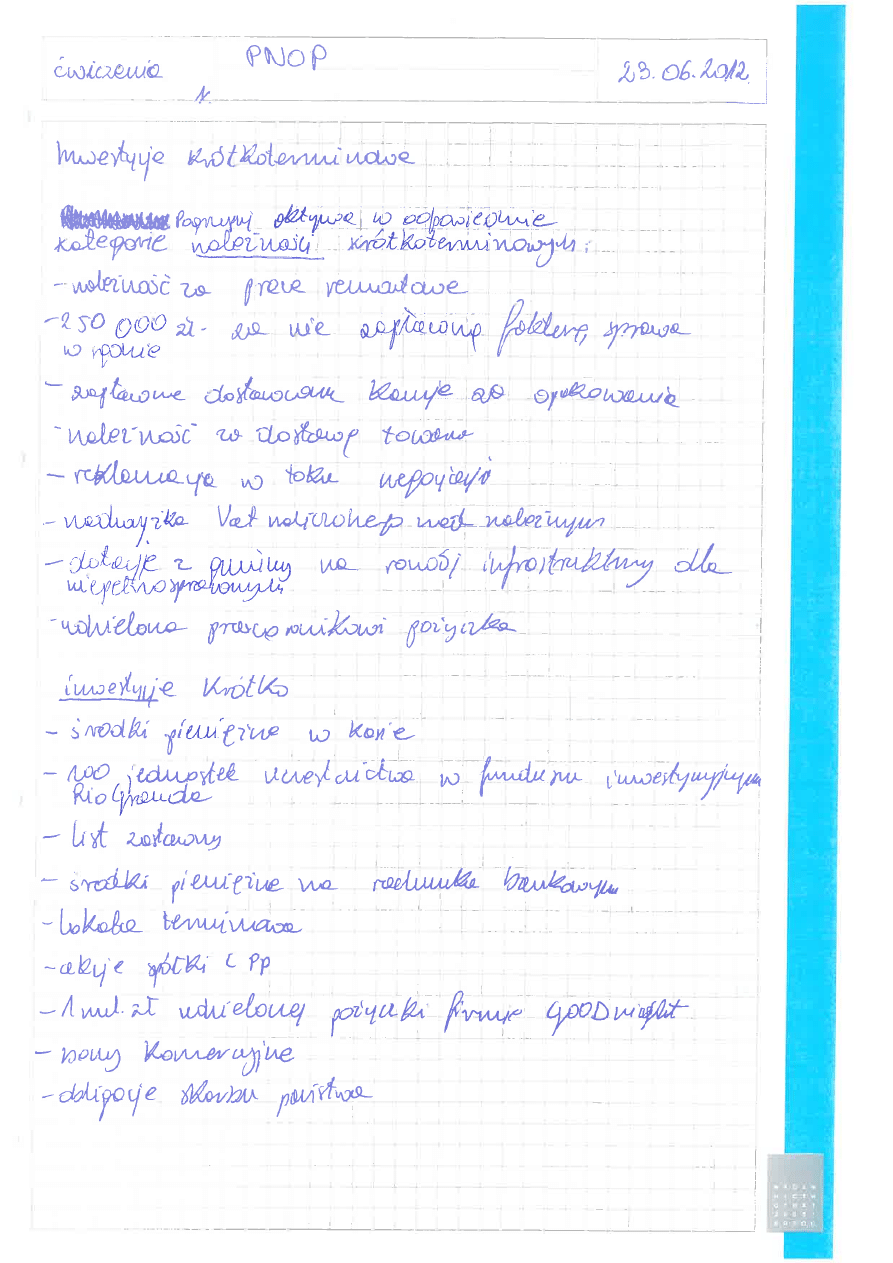 PNOP
ćwiczenia
23.06.2012
Inwestycje krótkoterminowe
Pogrupuj aktywa w odpowiednie
kategorie należności krótkoterminowych:
- należność za prace remontowe
- 250 000 zł - za nie zapłaconą fakturę, sprawa
w sądzie
- zapłacone dostawcom kaucje za opakowania
- należność za dostawę towaru
- reklamacja w toku negocjacji
- nadwyżka Vat naliczonego nad należnym
- dotacje z gminy na rozwój infrastruktury dla
niepełnosprawnych
- udzielona pracownikowi pożyczka
inwestycje krótko
- środki pieniężne w kasie
- 100 jednostek uczestnictwa w funduszu inwestycyjnym
Rio Grande
- list zastawny
- środki pieniężne na rachunku bankowym
- lokata terminowa
- akcje spółki C PP
- 1 mln. zł udzielonej pożyczki firmie GOOD night
- bony komercyjne
- obligacje skarbu państwa